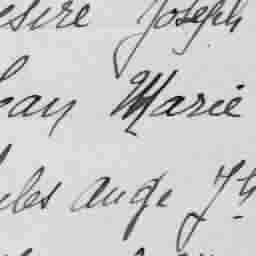 esire Joseph
ean Marie
ules ange Jh